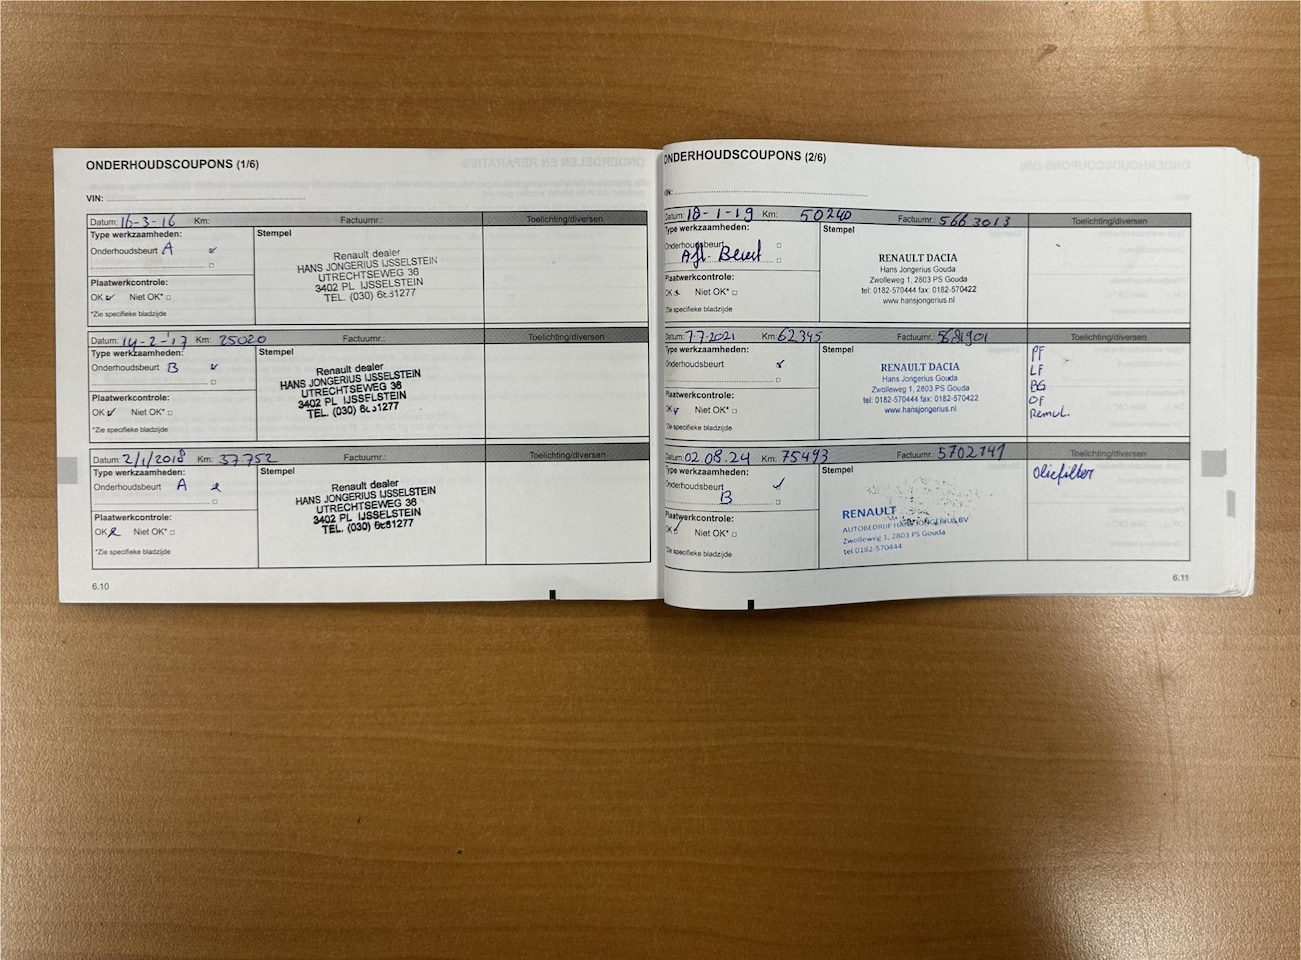 ONDERHOUDSCOUPONS (1/6)
VIN:
Datum: 16-3-16 Km: Factuurnr.: Toelichting/diversen
Type werkzaamheden: Stempel
Onderhoudsbeurt A
Renault dealer
HANS JONGERIUS IJSSELSTEIN
UTRECHTSEWEG 36
3402 PL IJSSELSTEIN
TEL. (030) 6881277
Plaatwerkcontrole:
OK Niet OK*
*Zie specifieke bladzijde
Datum: 14-2-17 Km: 25020 Factuurnr.: Toelichting/diversen
Type werkzaamheden: Stempel
Onderhoudsbeurt B
Renault dealer
HANS JONGERIUS IJSSELSTEIN
UTRECHTSEWEG 36
3402 PL IJSSELSTEIN
TEL. (030) 6881277
Plaatwerkcontrole:
OK Niet OK*
*Zie specifieke bladzijde
Datum: 2/1/2018 Km: 37752 Factuurnr.: Toelichting/diversen
Type werkzaamheden: Stempel
Onderhoudsbeurt A
Renault dealer
HANS JONGERIUS IJSSELSTEIN
UTRECHTSEWEG 36
3402 PL IJSSELSTEIN
TEL. (030) 6881277
Plaatwerkcontrole:
OK Niet OK*
*Zie specifieke bladzijde
6.10
ONDERHOUDSCOUPONS (2/6)
VIN:
Datum: 18-1-19 Km: 50240 Factuurnr.: 5663013 Toelichting/diversen
Type werkzaamheden: Stempel
Onderhoudsbeurt
Afl. Beurt
RENAULT DACIA
Hans Jongerius Gouda
Zwolleweg 1, 2803 PS Gouda
tel: 0182-570444 fax: 0182-570422
www.hansjongerius.nl
Plaatwerkcontrole:
OK Niet OK*
*Zie specifieke bladzijde
Datum: 7-7-2021 Km: 62345 Factuurnr.: 5681901 Toelichting/diversen
Type werkzaamheden: Stempel
Onderhoudsbeurt
RENAULT DACIA
Hans Jongerius Gouda
Zwolleweg 1, 2803 PS Gouda
tel: 0182-570444 fax: 0182-570422
www.hansjongerius.nl
PF
LF
BG
OF
Remvl.
Plaatwerkcontrole:
OK Niet OK*
*Zie specifieke bladzijde
Datum: 02.08.24 Km: 75493 Factuurnr.: 5702141 Toelichting/diversen
Type werkzaamheden: Stempel
Onderhoudsbeurt
B
RENAULT
AUTOBEDRIJF HANS JONGERIUS BV
Zwolleweg 1, 2803 PS Gouda
tel 0182-570444
Oliefilter
Plaatwerkcontrole:
OK Niet OK*
*Zie specifieke bladzijde
6.11